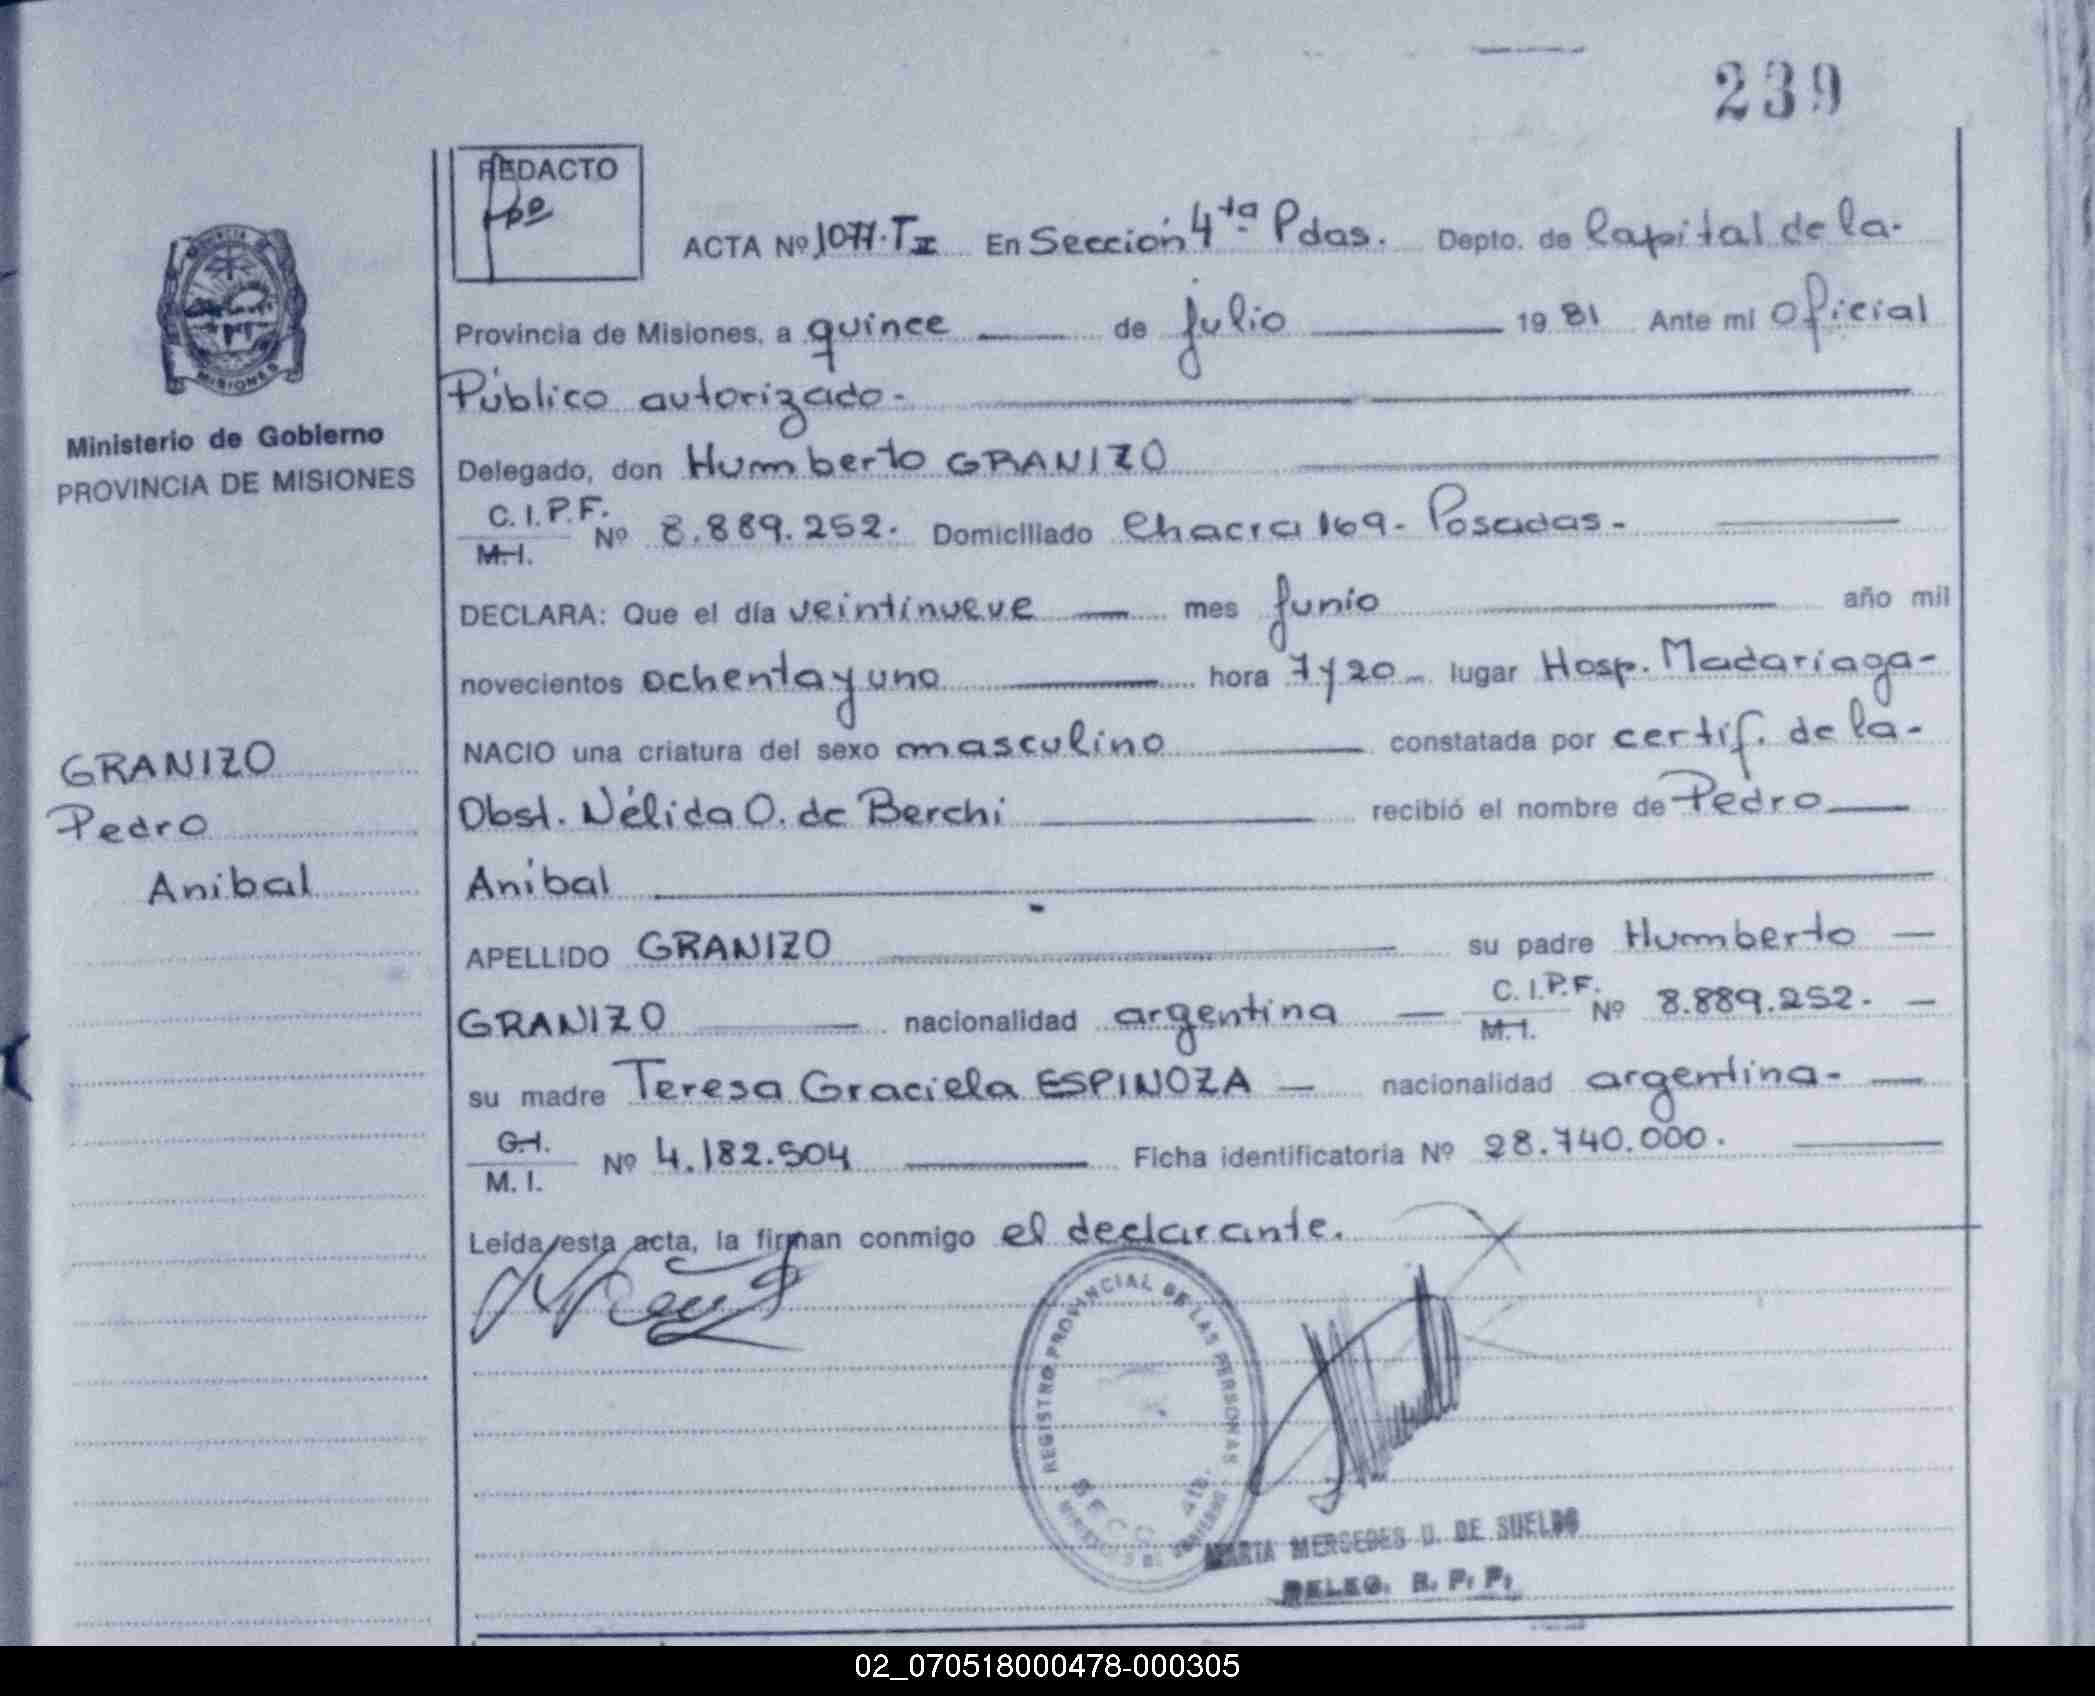 239
REDACTO
ACTA Nº 1077·T II En Sección 4ta Pdas. Depto. de Capital de la-
Provincia de Misiones, a quince de Julio 1981 Ante mi Oficial
Público autorizado-
Ministerio de Gobierno
PROVINCIA DE MISIONES
Delegado, don Humberto GRANIZO
C.I.P.F.
M.I. Nº 8.889.252. Domiciliado Chacra 169- Posadas-
DECLARA: Que el día veintinueve mes Junio año mil
novecientos ochenta y uno hora 7 y 20 lugar Hosp. Madariaga-
NACIO una criatura del sexo masculino constatada por certif. de la-
Obst. Nélida O. de Berchi recibió el nombre de Pedro
Aníbal
GRANIZO
Pedro
Anibal
APELLIDO GRANIZO su padre Humberto
GRANIZO nacionalidad argentina C.I.P.F.
M.I. Nº 8.889.252.
su madre Teresa Graciela ESPINOZA nacionalidad argentina-
C.I.
M.I. Nº 4.182.504 Ficha identificatoria Nº 28.740.000.
Leida esta acta, la firman conmigo el declarante.
REGISTRO PROVINCIAL DE LAS PERSONAS
SECC. 4ta.
MARTA MERCEDES U. DE SUELDO
DELEG. R. P. P.
MISIONES
02_070518000478-000305